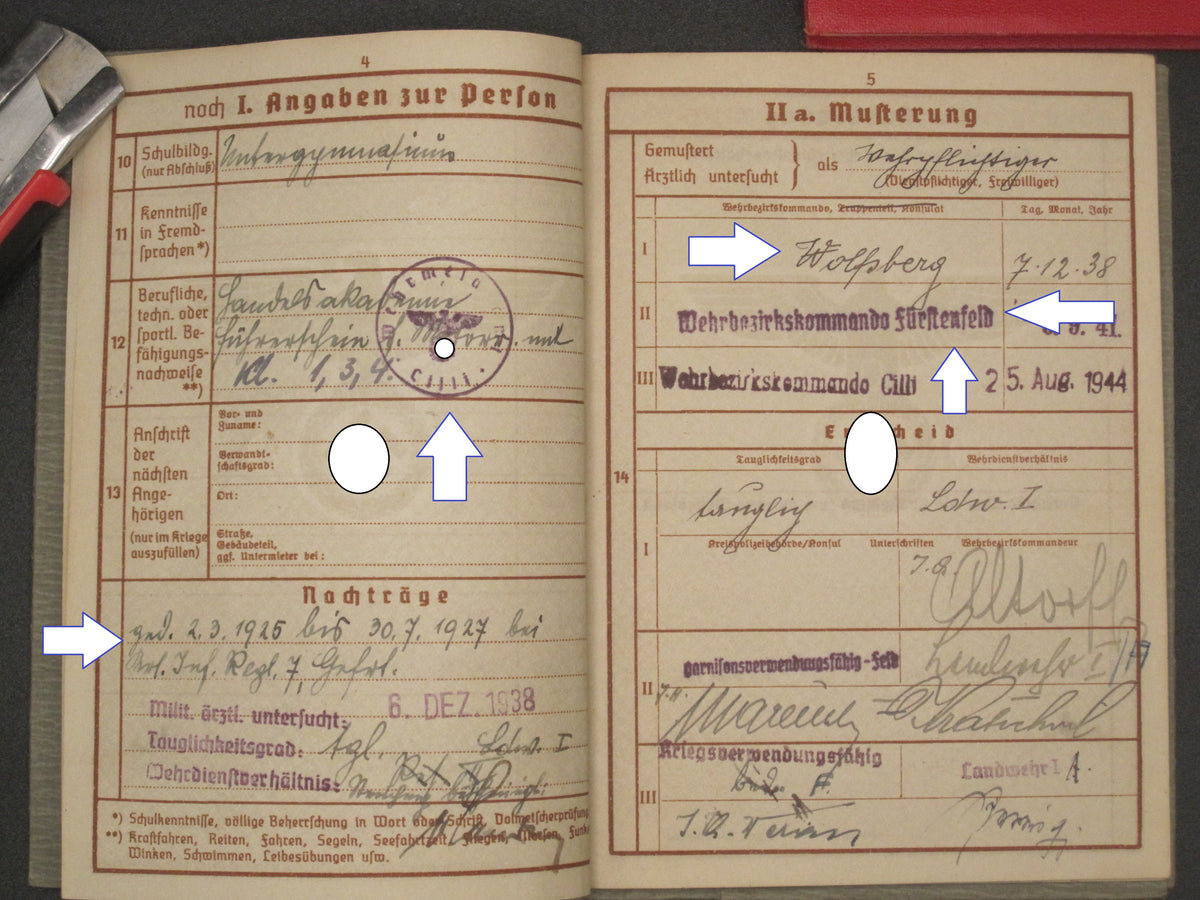 4
noch I. Angaben zur Person
10
Schulbildg.
(nur Abschluß)
Untergymnasium
11
Kenntnisse
in Fremd-
sprachen *)
12
Berufliche,
techn. oder
sportl. Be-
fähigungs-
nachweise
**)
Handelsakademie
Führerschein f. Motorr. mit
Kl. 1, 3, 4.
Cilli
13
Anschrift
der
nächsten
Ange-
hörigen
(nur im Kriege
auszufüllen)
Vor- und
Zuname:
Verwandt-
schaftsgrad:
Ort:
Straße,
Gebäudeteil,
ggf. Untermieter bei:
Nachträge
ged. 2.3.1925 bis 30.7.1927 bei
Inf. Regt. 7, Gefrt.
Milit. ärztl. untersucht: 6. DEZ. 1938
Tauglichkeitsgrad: tgl. Ldw. I
Wehrdienstverhältnis:
*) Schulkenntnisse, völlige Beherrschung in Wort oder Schrift, Dolmetscherprüfung
**) Kraftfahren, Reiten, Fahren, Segeln, Seefahrtzeit, Fliegen, Morsen, Funk
Winken, Schwimmen, Leibesübungen usw.
5
IIa. Musterung
Gemustert
Ärztlich untersucht
als
Wehrpflichtiger
(Dienstpflichtiger, Freiwilliger)
Wehrbezirkskommando, Truppenteil, Konsulat
Tag, Monat, Jahr
I
Wolfsberg
7.12.38
II
Wehrbezirkskommando Fürstenfeld
9. 41.
III
Wehrbezirkskommando Cilli
25. Aug. 1944
14
Tauglichkeitsgrad
Wehrdienstverhältnis
I
tauglich
Ldw. I
Kreispolizeibehörde/Konsul
Unterschriften
Wehrbezirkskommandeur
II
garnisonsverwendungsfähig-Feld
Landwehr I
III
Kriegsverwendungsfähig
Landwehr I